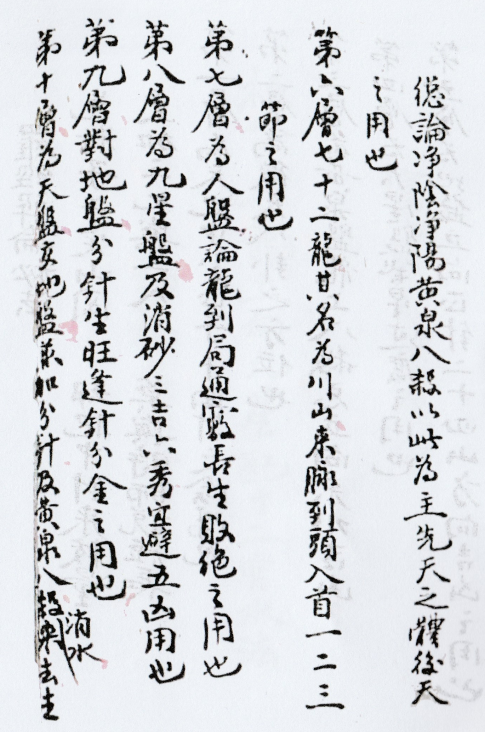 總論净陰净陽黄泉八殺以此為主先天之體後天
之用也
第六層七十二龍其名為川山来脉到頭入首一二三
節之用也
第七層為人盤論龍到局通竅長生敗絶之用也
第八層為九星盤及消砂三吉六秀宜避五凶用也
第九層對地盤分針生旺逢針分金之用也
第十層為天盤亥地盤兼加分針及黄泉八殺來去生
消水